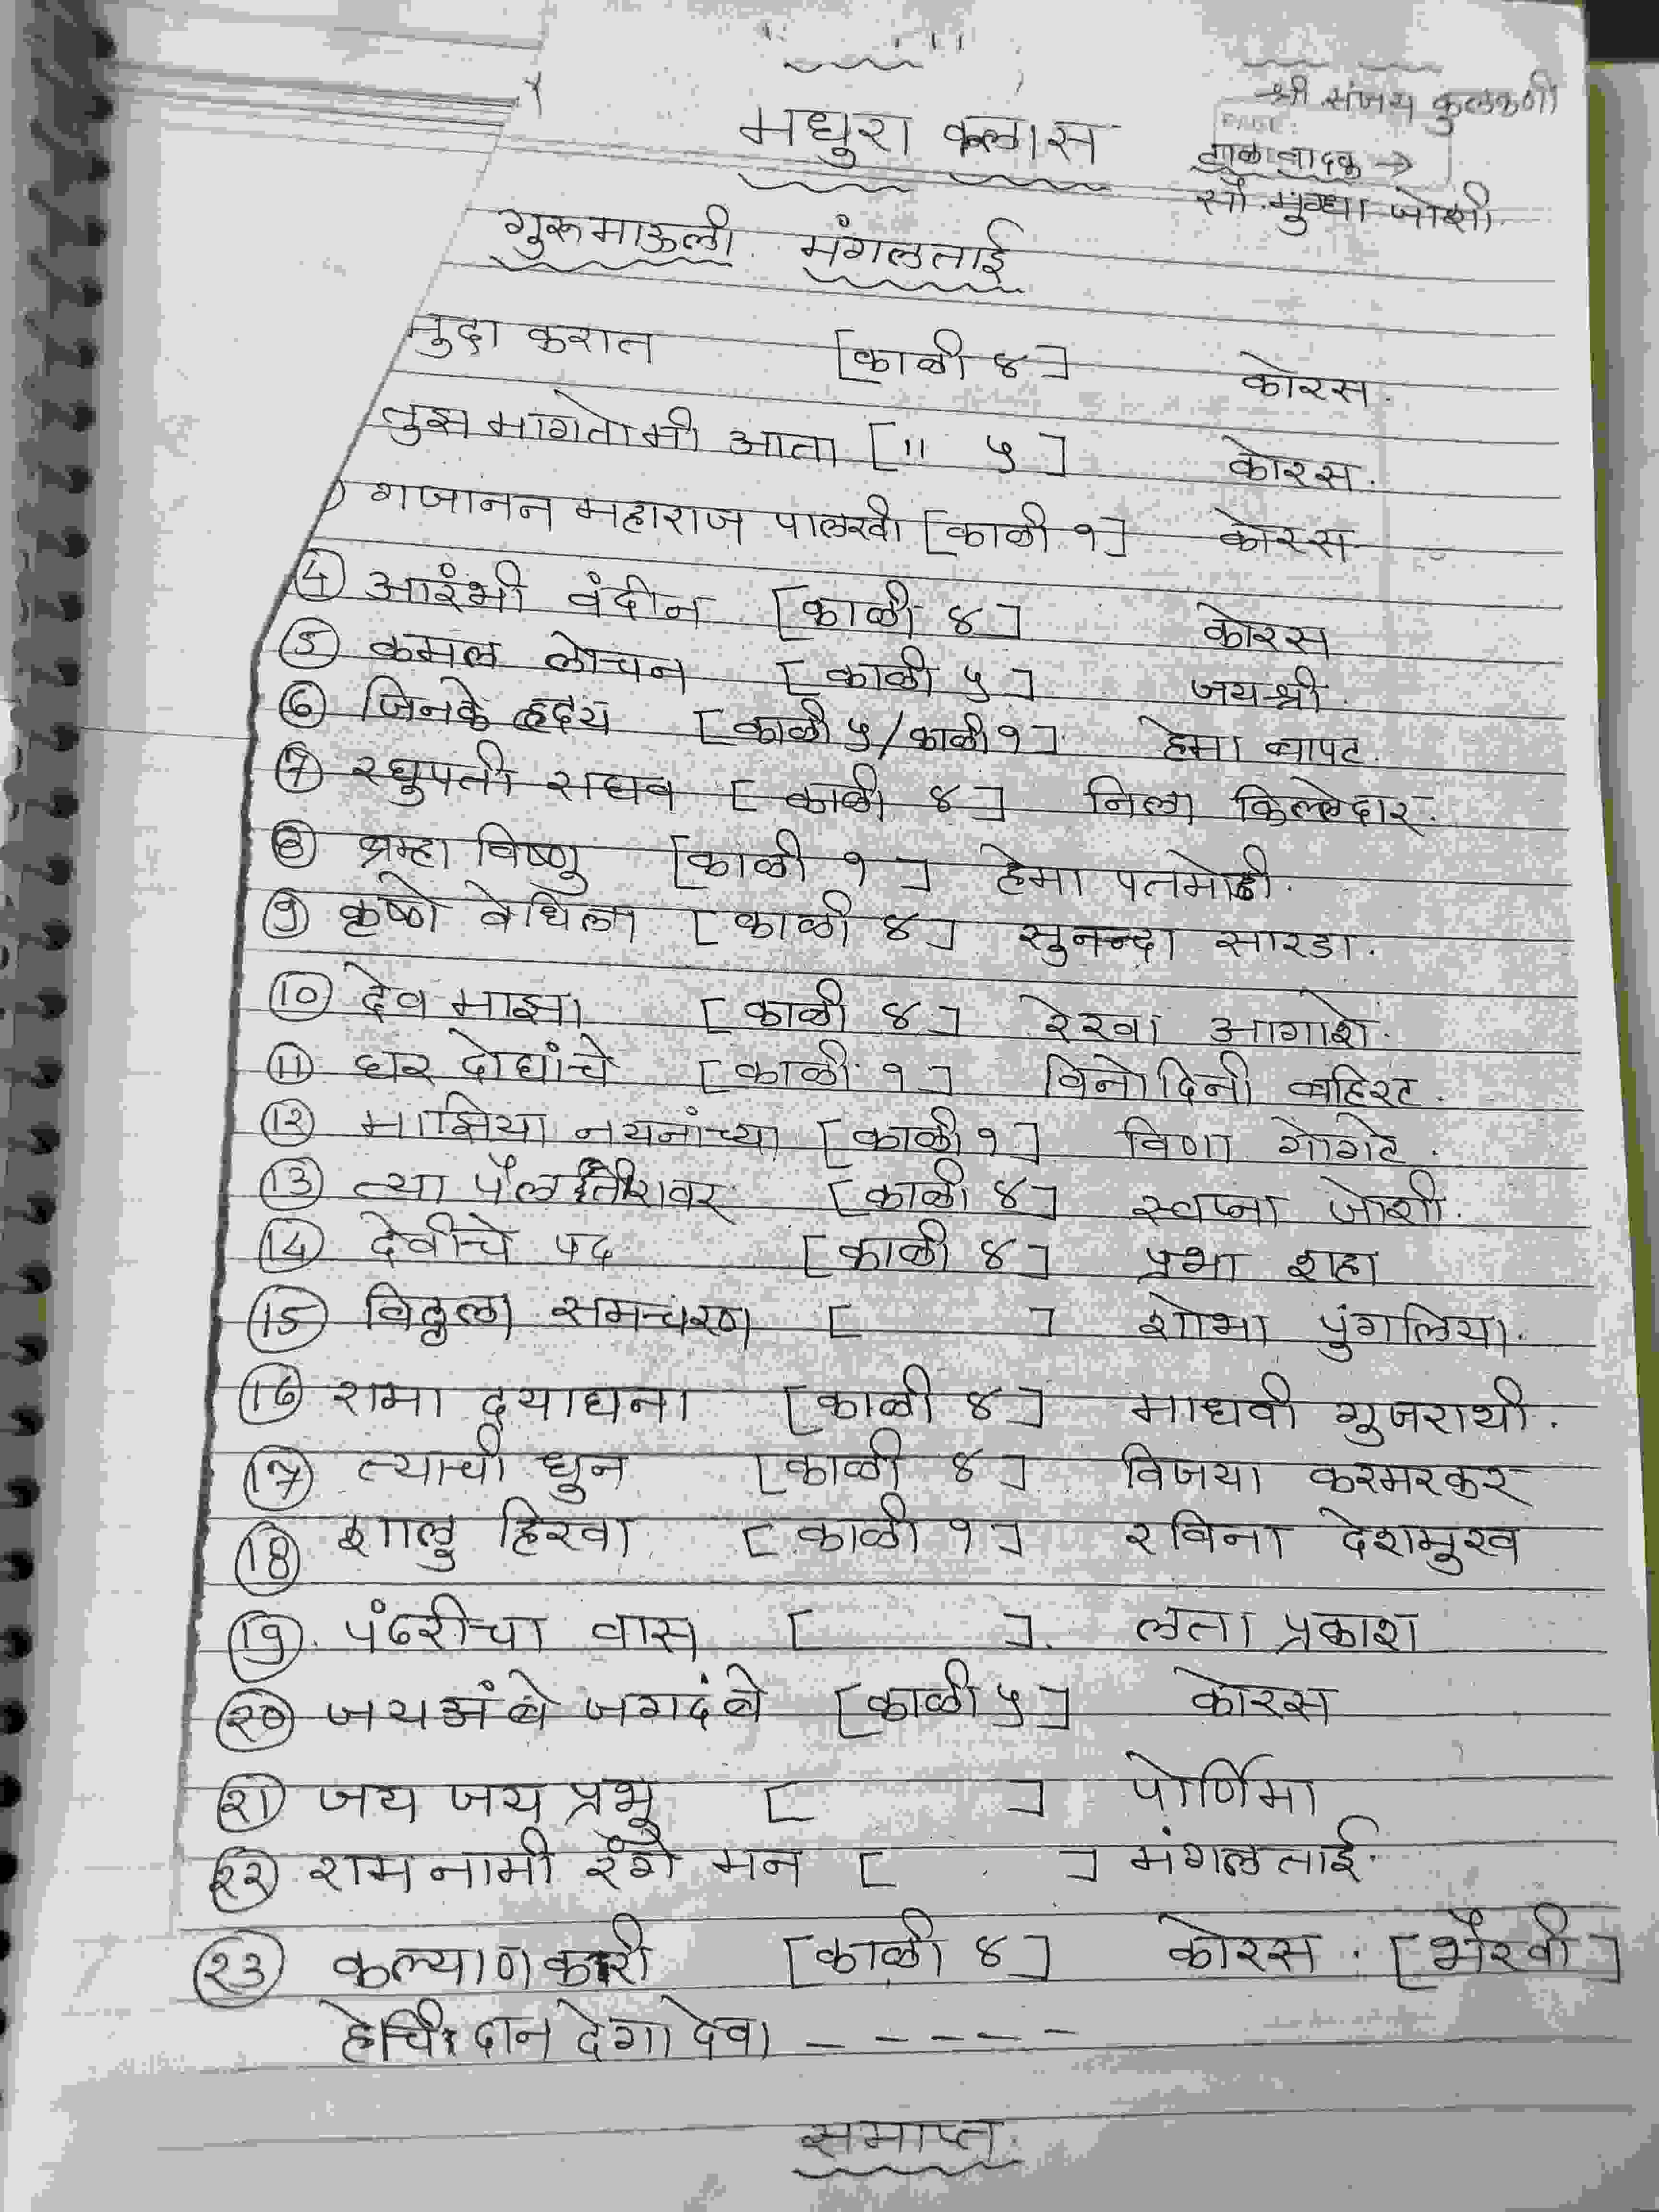 श्री संजय कुलकर्णी
मधुरा क्लास
टाळ वादक →
सौ. मुग्धा जोशी.
गुरुमाऊली. मंगलताई
मुदा करात [काळी ४] कोरस.
तुझ मागतो मी आता [" ५] कोरस.
गजानन महाराज पालखी [काळी १] कोरस
4 आरंभी वंदीन [काळी ४] कोरस
5 कमल लोचन [काळी ५] जयश्री.
6 जिनके हृदय [काळी ५/काळी १] हेमा बापट.
7 रघुपती राघव [काळी ४] निला किल्लेदार.
8 ब्रम्हा विष्णु [काळी १] हेमा पतमोडी.
9 कृष्णे वेधिला [काळी ४] सुनन्दा सारडा.
10 देव माझा [काळी ४] रेखा आगाशे.
11 घर दोघांचे [काळी १] विनोदिनी बहिरट.
१२ माझिया नयनांच्या [काळी १] विणा गोगटे.
13 त्या पैलतीरावर [काळी ४] स्वप्ना जोशी.
14 देवीचे पद [काळी ४] प्रभा शहा
15 विठ्ठला समचरण [ ] शोभा पुंगलिया.
16 रामा दयाघना [काळी ४] माधवी गुजराथी.
17 त्याची धुन [काळी ४] विजया करमरकर
18 शालु हिरवा [काळी १] रविना देशमुख
19. पंढरीचा वास [ ]. लता प्रकाश
२० जयअंबे जगदंबे [काळी ५] कोरस
२१ जय जय प्रभू [ ] पोर्णिमा
२२ रामनामी रंगे मन [ ] मंगलताई.
२३ कल्याणकारी [काळी ४] कोरस. [भैरवी]
हेचि दान देगा देवा - - - - -
समाप्त.